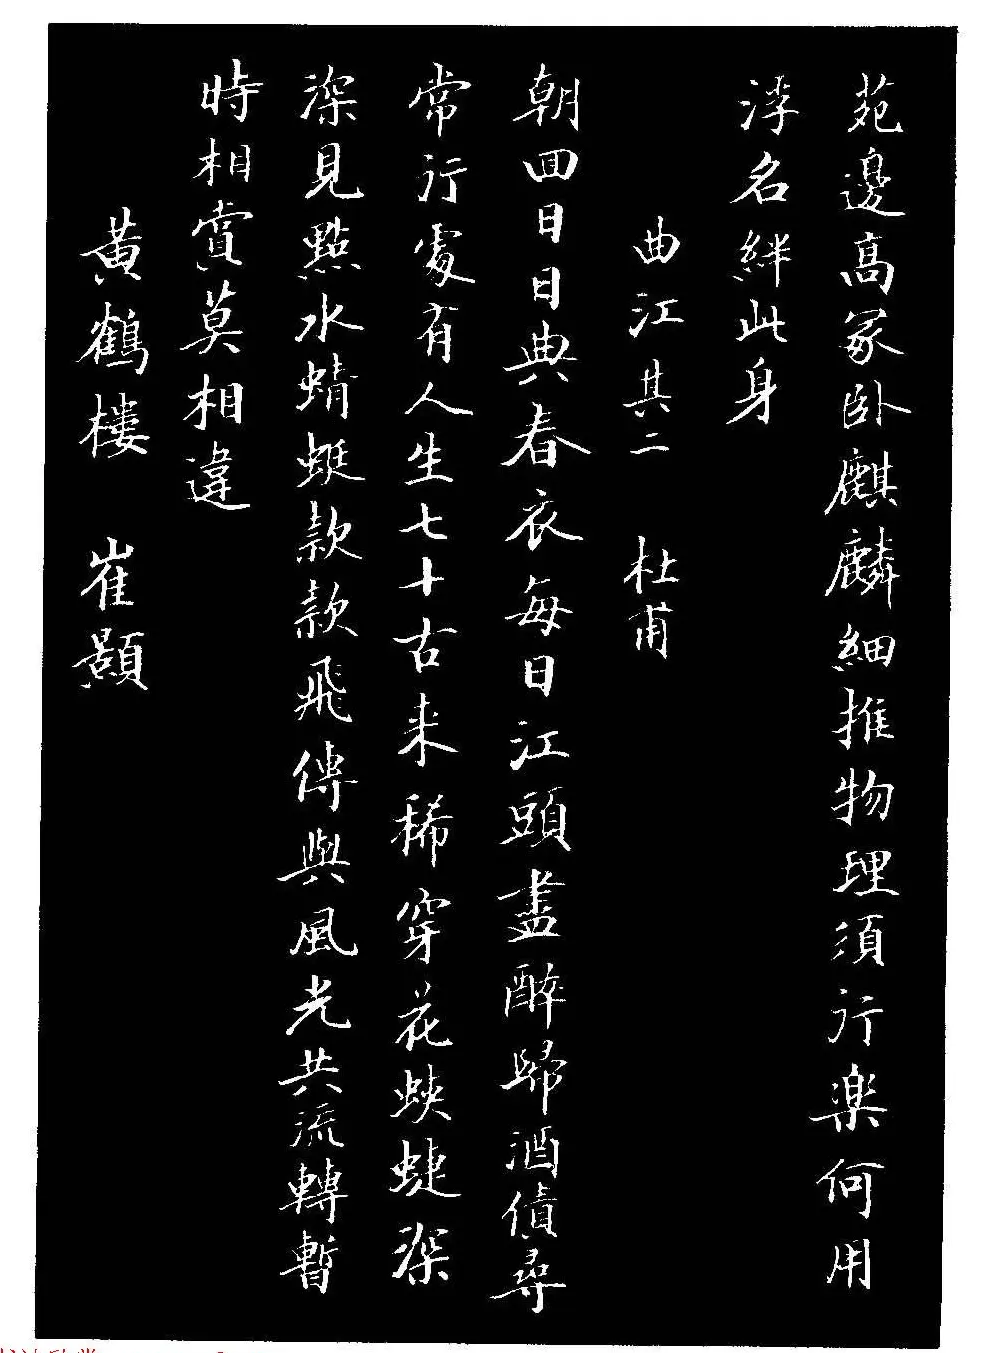 苑邊高冢卧麒麟細推物理須行樂何用
浮名絆此身
曲江其二 杜甫
朝回日日典春衣每日江頭盡醉歸酒債尋
常行處有人生七十古来稀穿花蛺蜨深
深見點水蜻蜓款款飛傳與風光共流轉暫
時相賞莫相違
黃鶴樓 崔顥